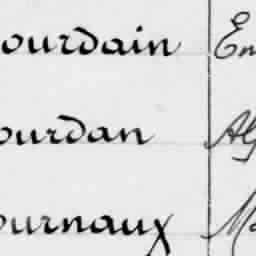 ourdain En
ourdan Alf
ournaux Ma